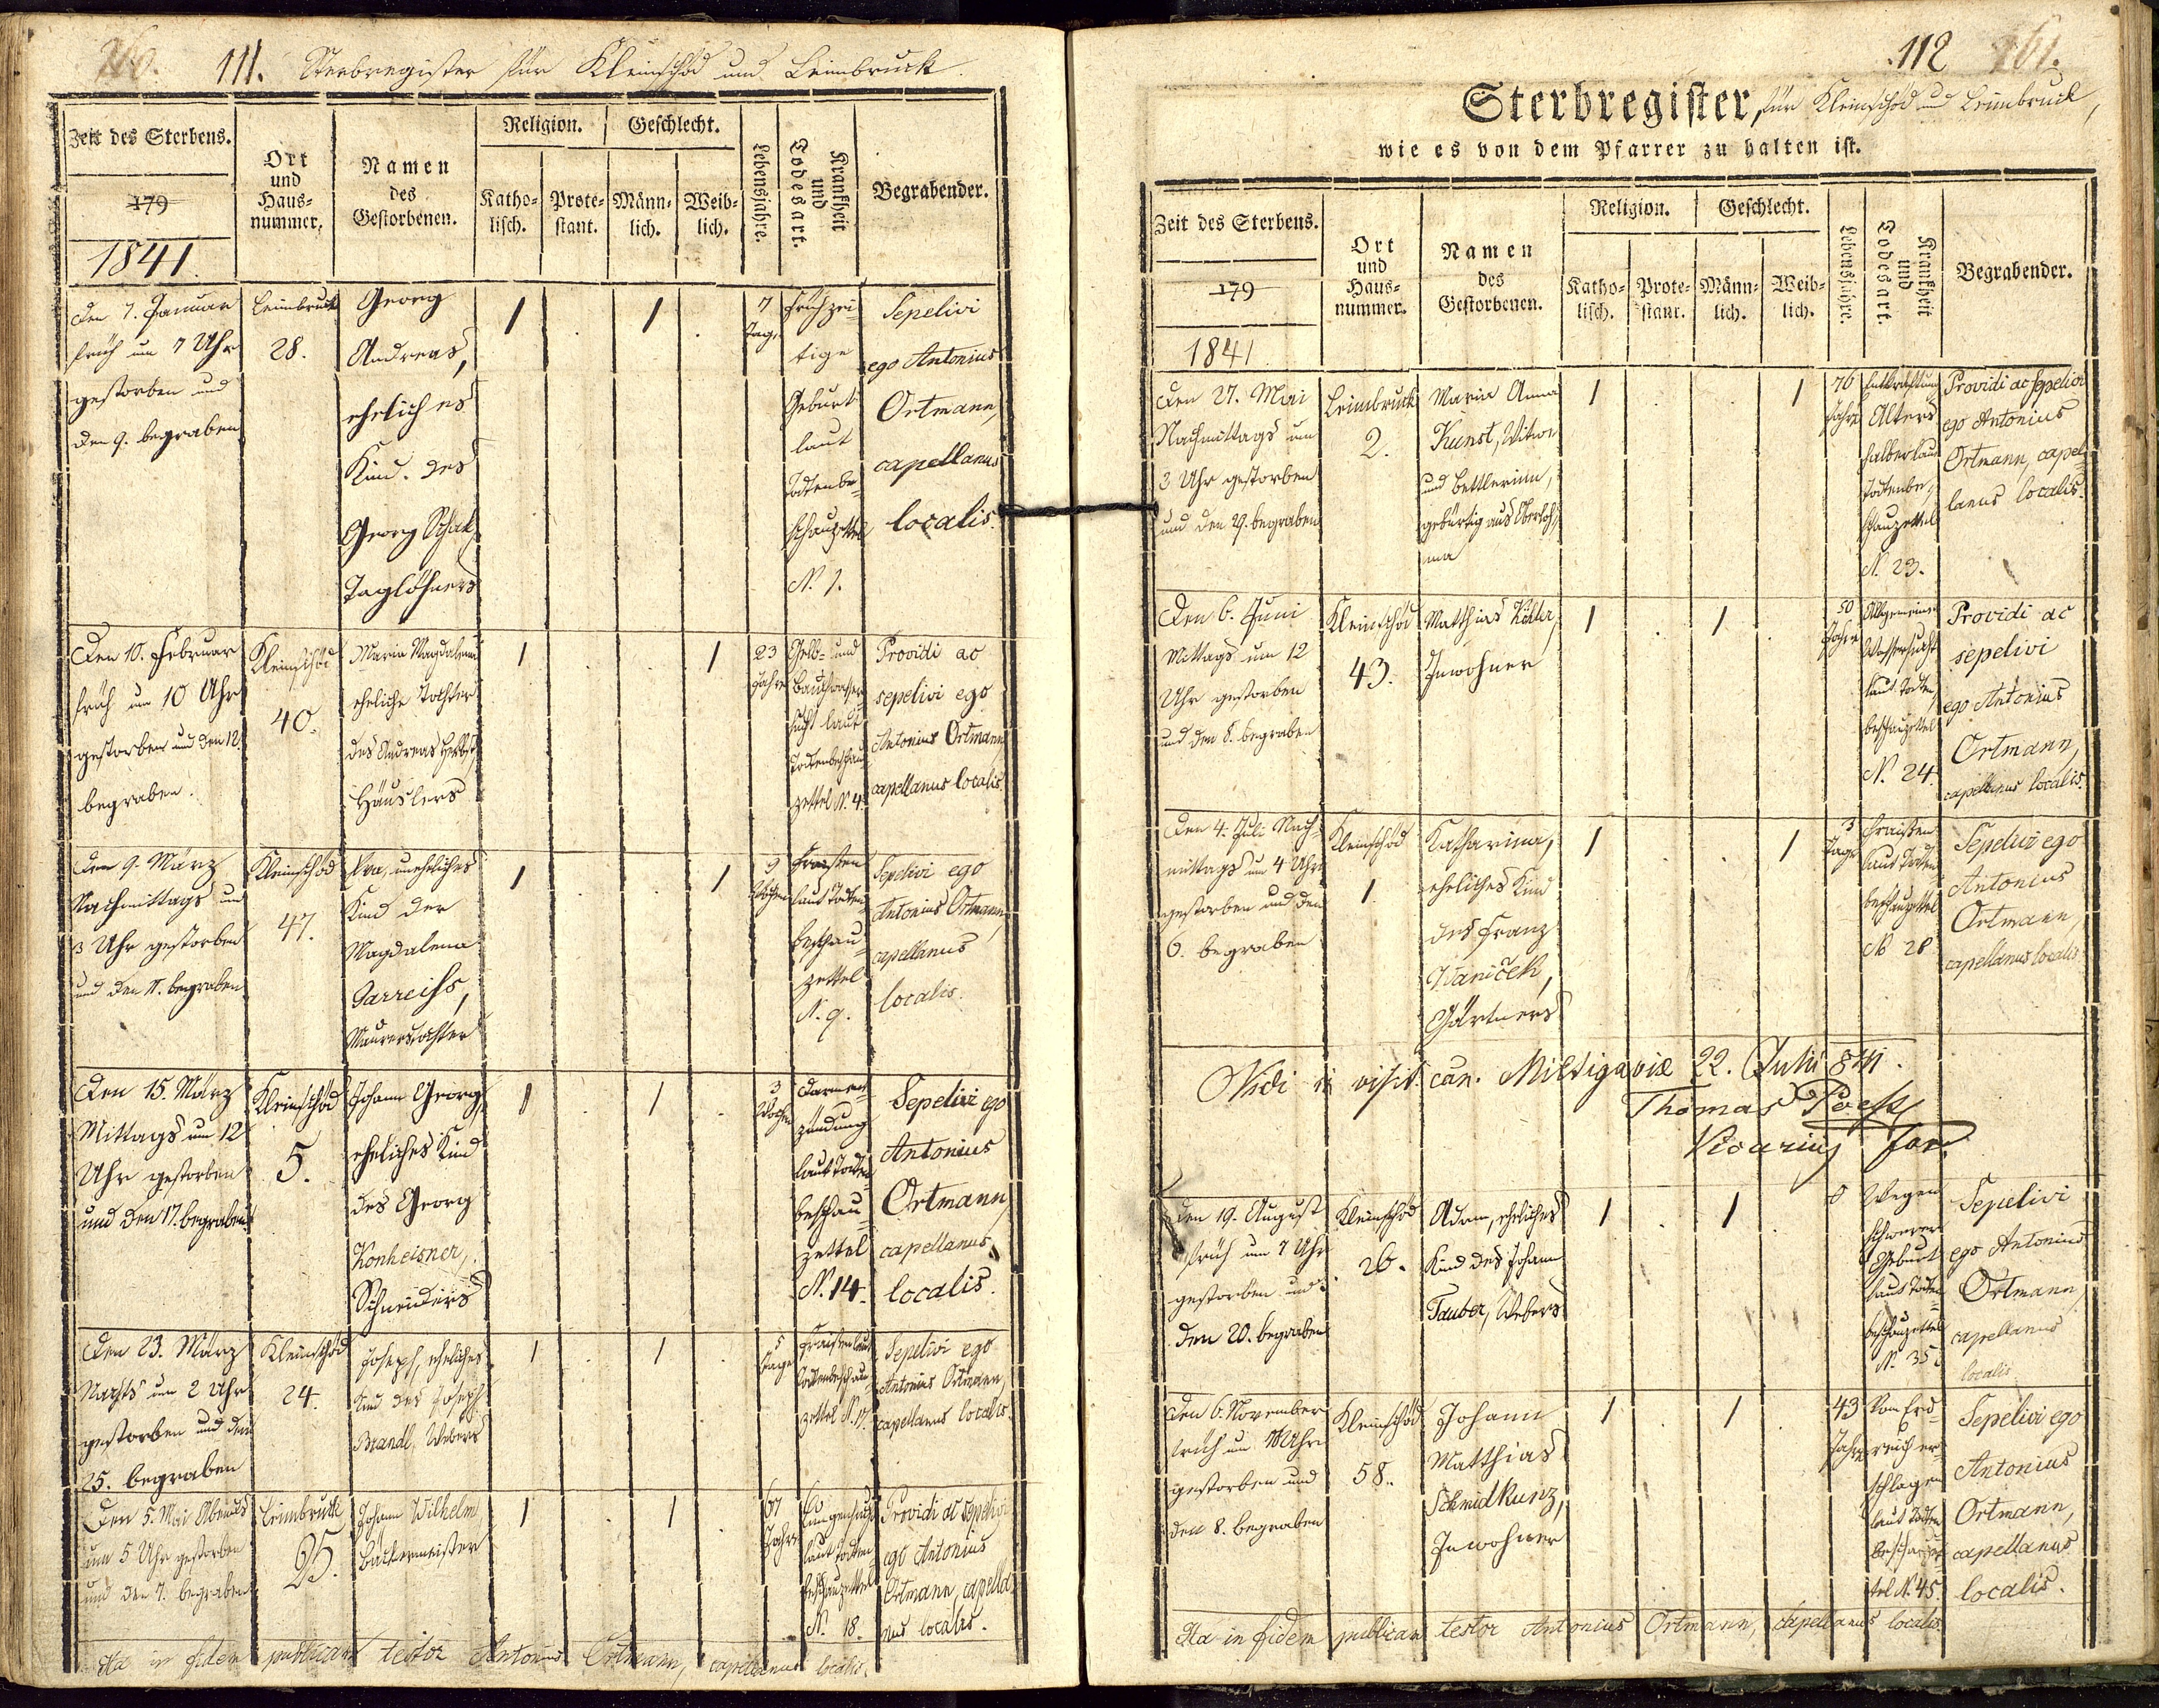 111. Sterbregister für Kleinschöd und Leimbruck.
Zeit des Sterbens.
179
1841.
Ort
und
Haus-
nummer.
Namen
des
Gestorbenen.
Religion.
Katho-
lisch.
Prote-
stant.
Geschlecht.
Männ-
lich.
Weib-
lich.
Lebensjahre.
Krankheit
und
Todesart.
Begrabender.
Den 7. Januar
früh um 7 Uhr
gestorben und
den 9. begraben
Leimbruck
28.
Georg
Andreas,
eheliches
Kind des
Georg Schak,
Taglöhners
1
1
7
Tag.
Frühzei-
tige
Geburt
laut
Todtenbe-
schauzettel
N. 1.
Sepelivi
ego Antonius
Ortmann,
capellanus
localis.
Den 10. Februar
früh um 10 Uhr
gestorben und den 12.
begraben.
Kleinschöd
40.
Maria Magdalena
eheliche Tochter
des Andreas Herbst,
Häuslers
1
1
23
Jahre
Gelb- und
Bauchwasser-
sucht laut
Todtenbeschau-
zettel N. 4.
Providi ac
sepelivi ego
Antonius Ortmann
capellanus localis.
Den 9. März
Nachmittags um
3 Uhr gestorben
und den 11. begraben
Kleinschöd
47.
Eva, uneheliches
Kind der
Magdalena
Jarreiss,
Maurerstochter
1
1
9
Wochen
Fraisen
laut Todten-
beschau-
zettel
N. 9.
Sepelivi ego
Antonius Ortmann,
capellanus
localis.
Den 15. März
Mittags um 12
Uhr gestorben
und den 17. begraben
Kleinschöd
5.
Johann Georg,
eheliches Kind
des Georg
Konheisner,
Schneiders
1
1
3
Wochen
Darment-
zündung
laut Todten-
beschau-
zettel
N. 14.
Sepelivi ego
Antonius
Ortmann,
capellanus
localis.
Den 23. März
Nachts um 2 Uhr
gestorben und den
25. begraben
Kleinschöd
24.
Joseph, eheliches
Kind des Joseph
Brandl, Webers
1
1
5
Tage
Fraisen laut
Todtenbeschau-
zettel N. 17.
Sepelivi ego
Antonius Ortmann,
capellanus localis.
Den 5. Mai Abends
um 5 Uhr gestorben
und den 7. begraben
Leimbruck
25.
Johann Wilhelm,
Bäckermeister
1
1
67
Jahre
Lungensucht
laut Todten-
beschauzettel
N. 18.
Providi ac sepelivi
ego Antonius
Ortmann, capella-
nus localis.
Ita in fidem publicam testor Antonius Ortmann, capellanus localis.
112 161.
Sterbregister, für Kleinschöd und Leimbruck,
wie es von dem Pfarrer zu halten ist.
Zeit des Sterbens.
179
1841
Ort
und
Haus-
nummer.
Namen
des
Gestorbenen.
Religion.
Katho-
lisch.
Prote-
stant.
Geschlecht.
Männ-
lich.
Weib-
lich.
Lebensjahre.
Krankheit
und
Todesart.
Begrabender.
Den 27. Mai
Nachmittags um
3 Uhr gestorben
und den 29. begraben
Leimbruck
2.
Maria Anna
Kunst, Witwe
und Bettlerinn,
gebürtig aus Oberloh-
ma
1
1
76
Jahre
Entkräftung
Alters
halber laut
Todtenbe-
schauzettel
N. 23.
Providi ac sepelivi
ego Antonius
Ortmann, capel-
lanus localis.
Den 6. Juni
Mittags um 12
Uhr gestorben
und den 8. begraben
Kleinschöd
43.
Matthias Köhler,
Inwohner
1
1
50
Jahre
Allgemeine
Wassersucht
laut Todten-
beschauzettel
N. 24.
Providi ac
sepelivi
ego Antonius
Ortmann,
capellanus localis.
Den 4. Juli Nach-
mittags um 4 Uhr
gestorben und den
6. begraben
Kleinschöd
1.
Katharina,
eheliches Kind
des Franz
Waniček,
Gärtners
1
1
3
Tage
Fraisen
laut Todten-
beschauzettel
N. 28
Sepelivi ego
Antonius
Ortmann,
capellanus localis
Vidi in visit. can. Miltigaviæ 22. Julii 841.
Thomas
Vicarius for.
Den 19. August
früh um 7 Uhr
gestorben und
den 20. begraben
Kleinschöd
26.
Adam, eheliches
Kind des Johann
Tauber, Webers
1
1
0
Wegen
schwerer
Geburt
laut Todten-
beschauzettel
N. 35.
Sepelivi
ego Antonius
Ortmann,
capellanus
localis
Den 6. November
früh um Uhr
gestorben und
den 8. begraben
Kleinschöd
58.
Johann
Matthias
Schmidkunz,
Inwohner
1
1
43
Jahre
Vom Erd-
reich er-
schlagen
laut Todten-
beschauzet-
tel N. 45.
Sepelivi ego
Antonius
Ortmann,
capellanus
localis.
Ita in fidem publicam testor Antonius Ortmann, capellanus localis.